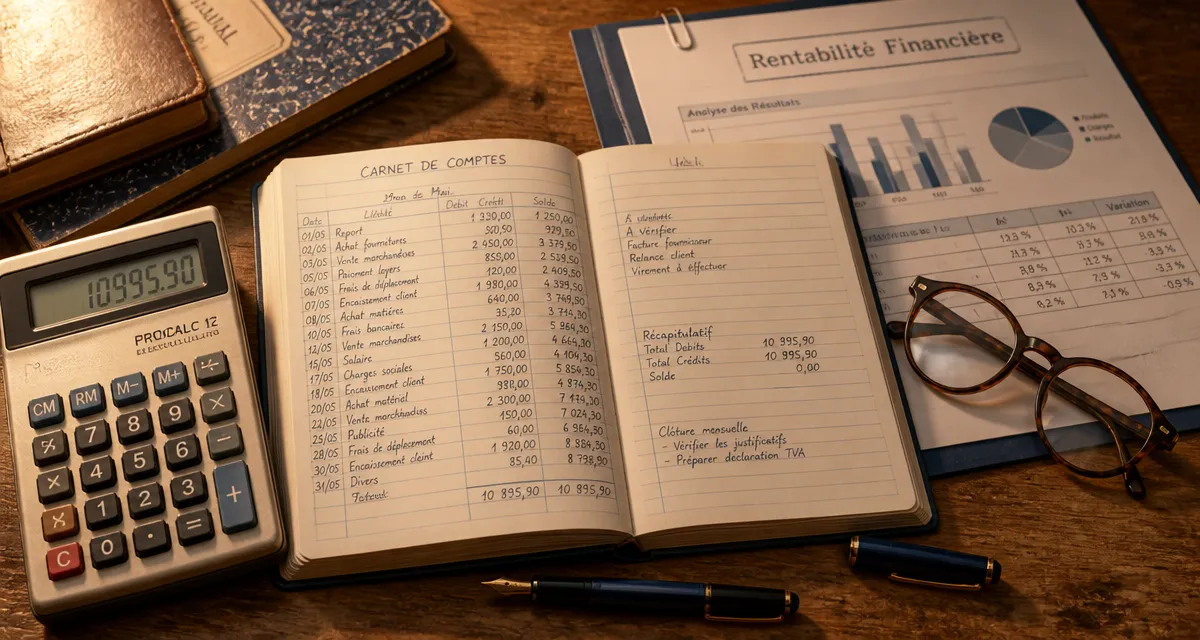 10995.90
PROCALC 12
CM RM M- M+ ÷
% 7 8 9 ×
× 4 5 6 −
% 1 2 3 +
C 0 . =
CARNET DE COMPTES
Date Débit Crédit Solde
01/05 Report 1 320,00 1 250,00
02/05 Achat fournitures 929,50
03/05 Vente marchandises 2 450,00 3 379,50
05/05 Paiement loyers 850,00 2 529,50
06/05 Frais de déplacement 120,00 2 409,50
07/05 Encaissement client 1 980,00 4 389,50
08/05 Achat matières 640,00 3 749,50
10/05 Frais bancaires 35,20 3 714,30
12/05 Vente marchandises 2 150,00 5 864,30
15/05 Salaire 1 200,00 4 664,30
17/05 Charges sociales 560,00 4 104,30
18/05 Encaissement client 1 750,00 5 854,30
20/05 Achat matériel 980,00 4 874,30
22/05 Vente marchandises 2 300,00 7 174,30
25/05 Publicité 150,00 7 024,30
28/05 Frais de déplacement 60,00 6 964,30
30/05 Encaissement cleint 1 920,00 8 884,30
31/05 Divers 85,40 8 798,90
10 895,90 10 895,90
A vérifier
Facture fournisseur
Relance client
Virement à effectuer
Récapitulatif
Total Debits 10 995,90
Total Crédits 10 895,90
Solde 0,00
Clôture mensuelle
- Vérifier les justificatifs
- Préparer declaration TVA
Rentabilité Financière
Analyse des Résultats
Variation
12,3 % 10,3 % 21,8 %
8,3 %
8,8 % 3,3 %
8,3 % 7,9 % -3,3 %
8,2 % 7,1 % -0,9 %